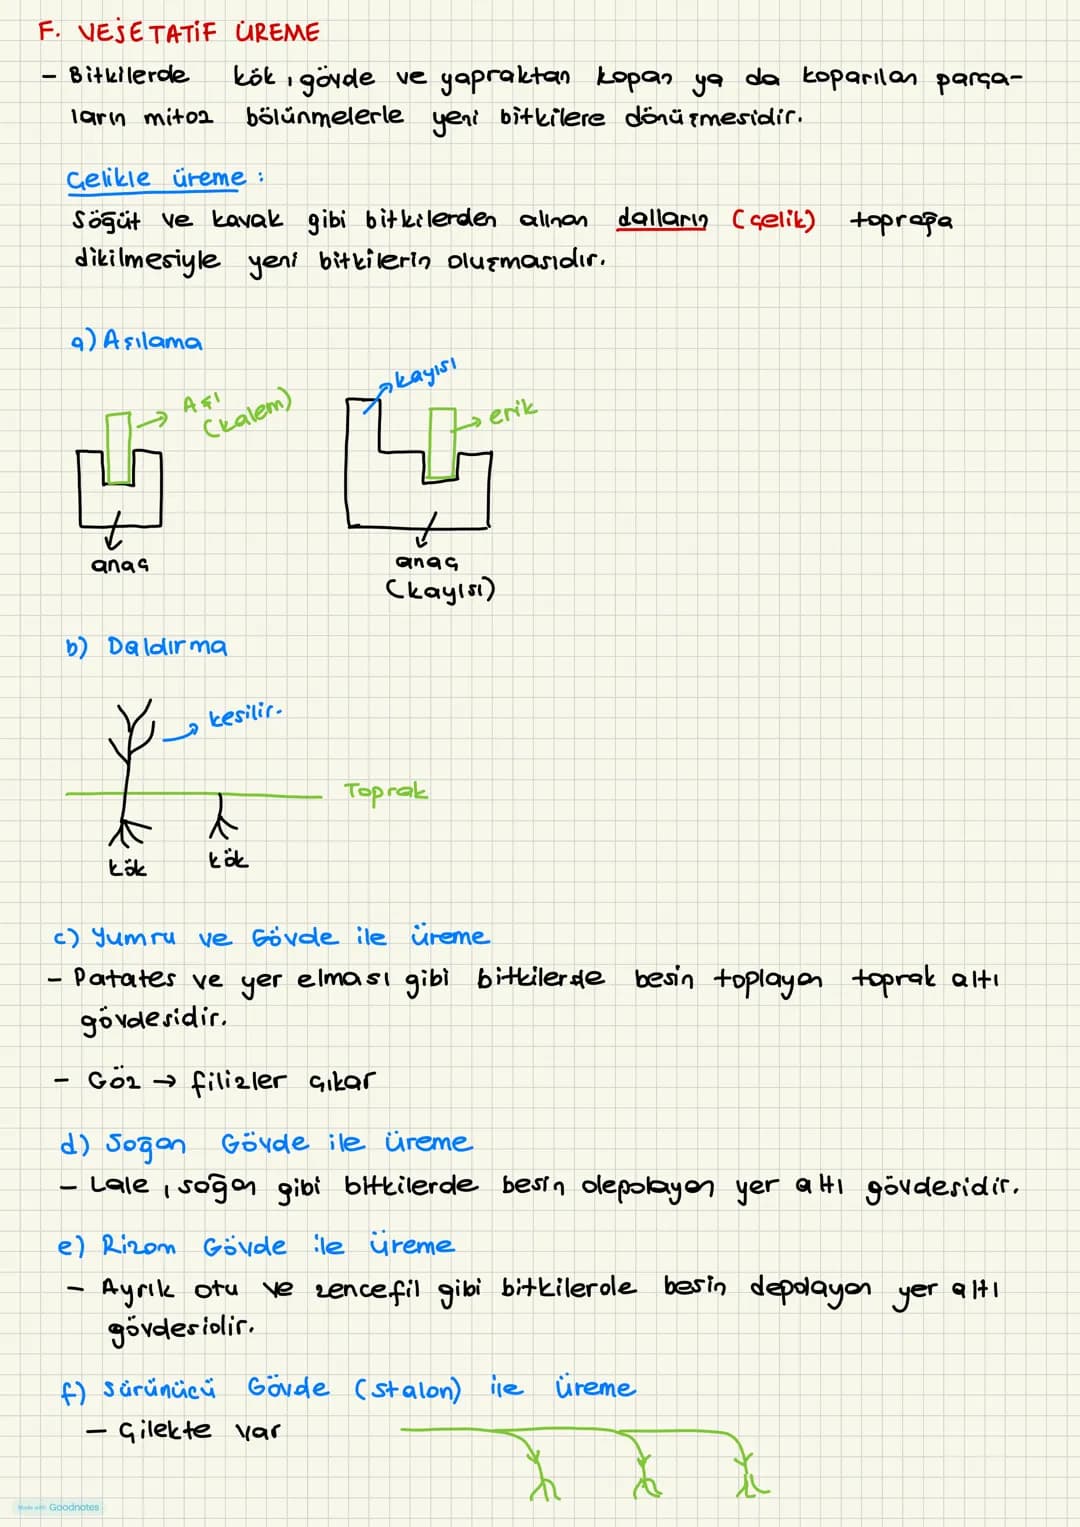 F. VEJETATİF ÜREME
- Bitkilerde kök, gövde ve yapraktan kopan ya da koparılan parça-
ların mitoz bölünmelerle yeni bitkilere dönüşmesidir.
Çelikle üreme :
Söğüt ve kavak gibi bitkilerden alınan dalların (çelik) toprağa
dikilmesiyle yeni bitkilerin oluşmasıdır.
a) Aşılama
Aşı
(kalem)
kayısı
erik
anaç
anaç
(kayısı)
b) Daldırma
kesilir.
Toprak
kök
kök
c) Yumru ve Gövde ile üreme
- Patates ve yer elması gibi bitkilerde besin toplayan toprak altı
gövdesidir.
- Göz → filizler çıkar
d) Soğan Gövde ile üreme
- Lale, soğan gibi bitkilerde besin depolayan yer altı gövdesidir.
e) Rizom Gövde ile üreme
- Ayrık otu ve zencefil gibi bitkilerde besin depolayan yer altı
gövdesidir.
f) Sürünücü Gövde (stalon) ile üreme
- Çilekte var
Made with Goodnotes